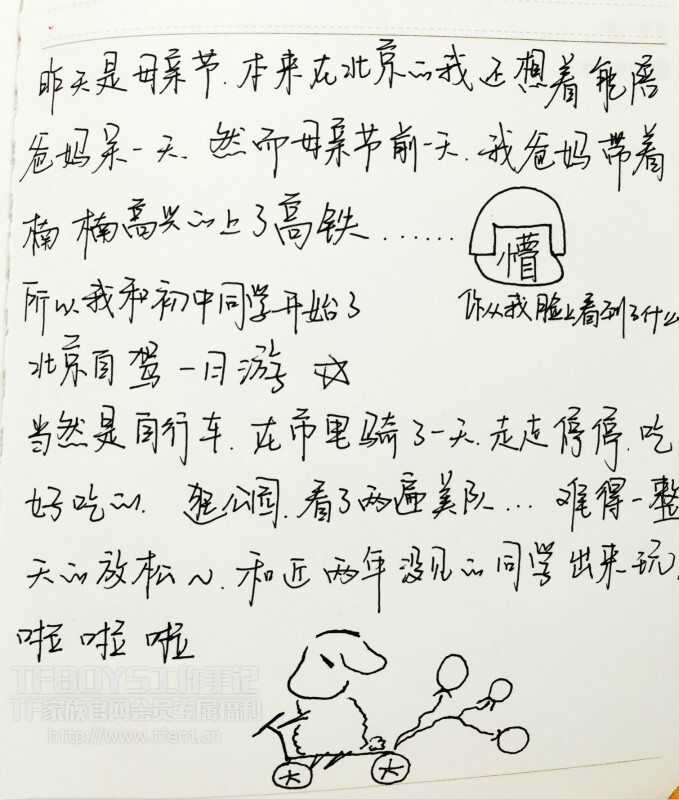 昨天是母亲节.本来在北京的我还想着能陪
爸妈呆一天.然而母亲节前一天.我爸妈带着
楠楠高兴的上了高铁......
懵
所以我和初中同学开始了
你从我脸上看到了什么
北京自驾一日游 ☆
当然是自行车.在市里骑了一天.走走停停.吃
好吃的.逛公园.看了两遍美队...难得一整
天的放松~.和近两年没见的同学出来玩.
啦啦啦
TFBOYS工作手记
TF家族官网会员专属福利
http://www.tfent.cn
大
大